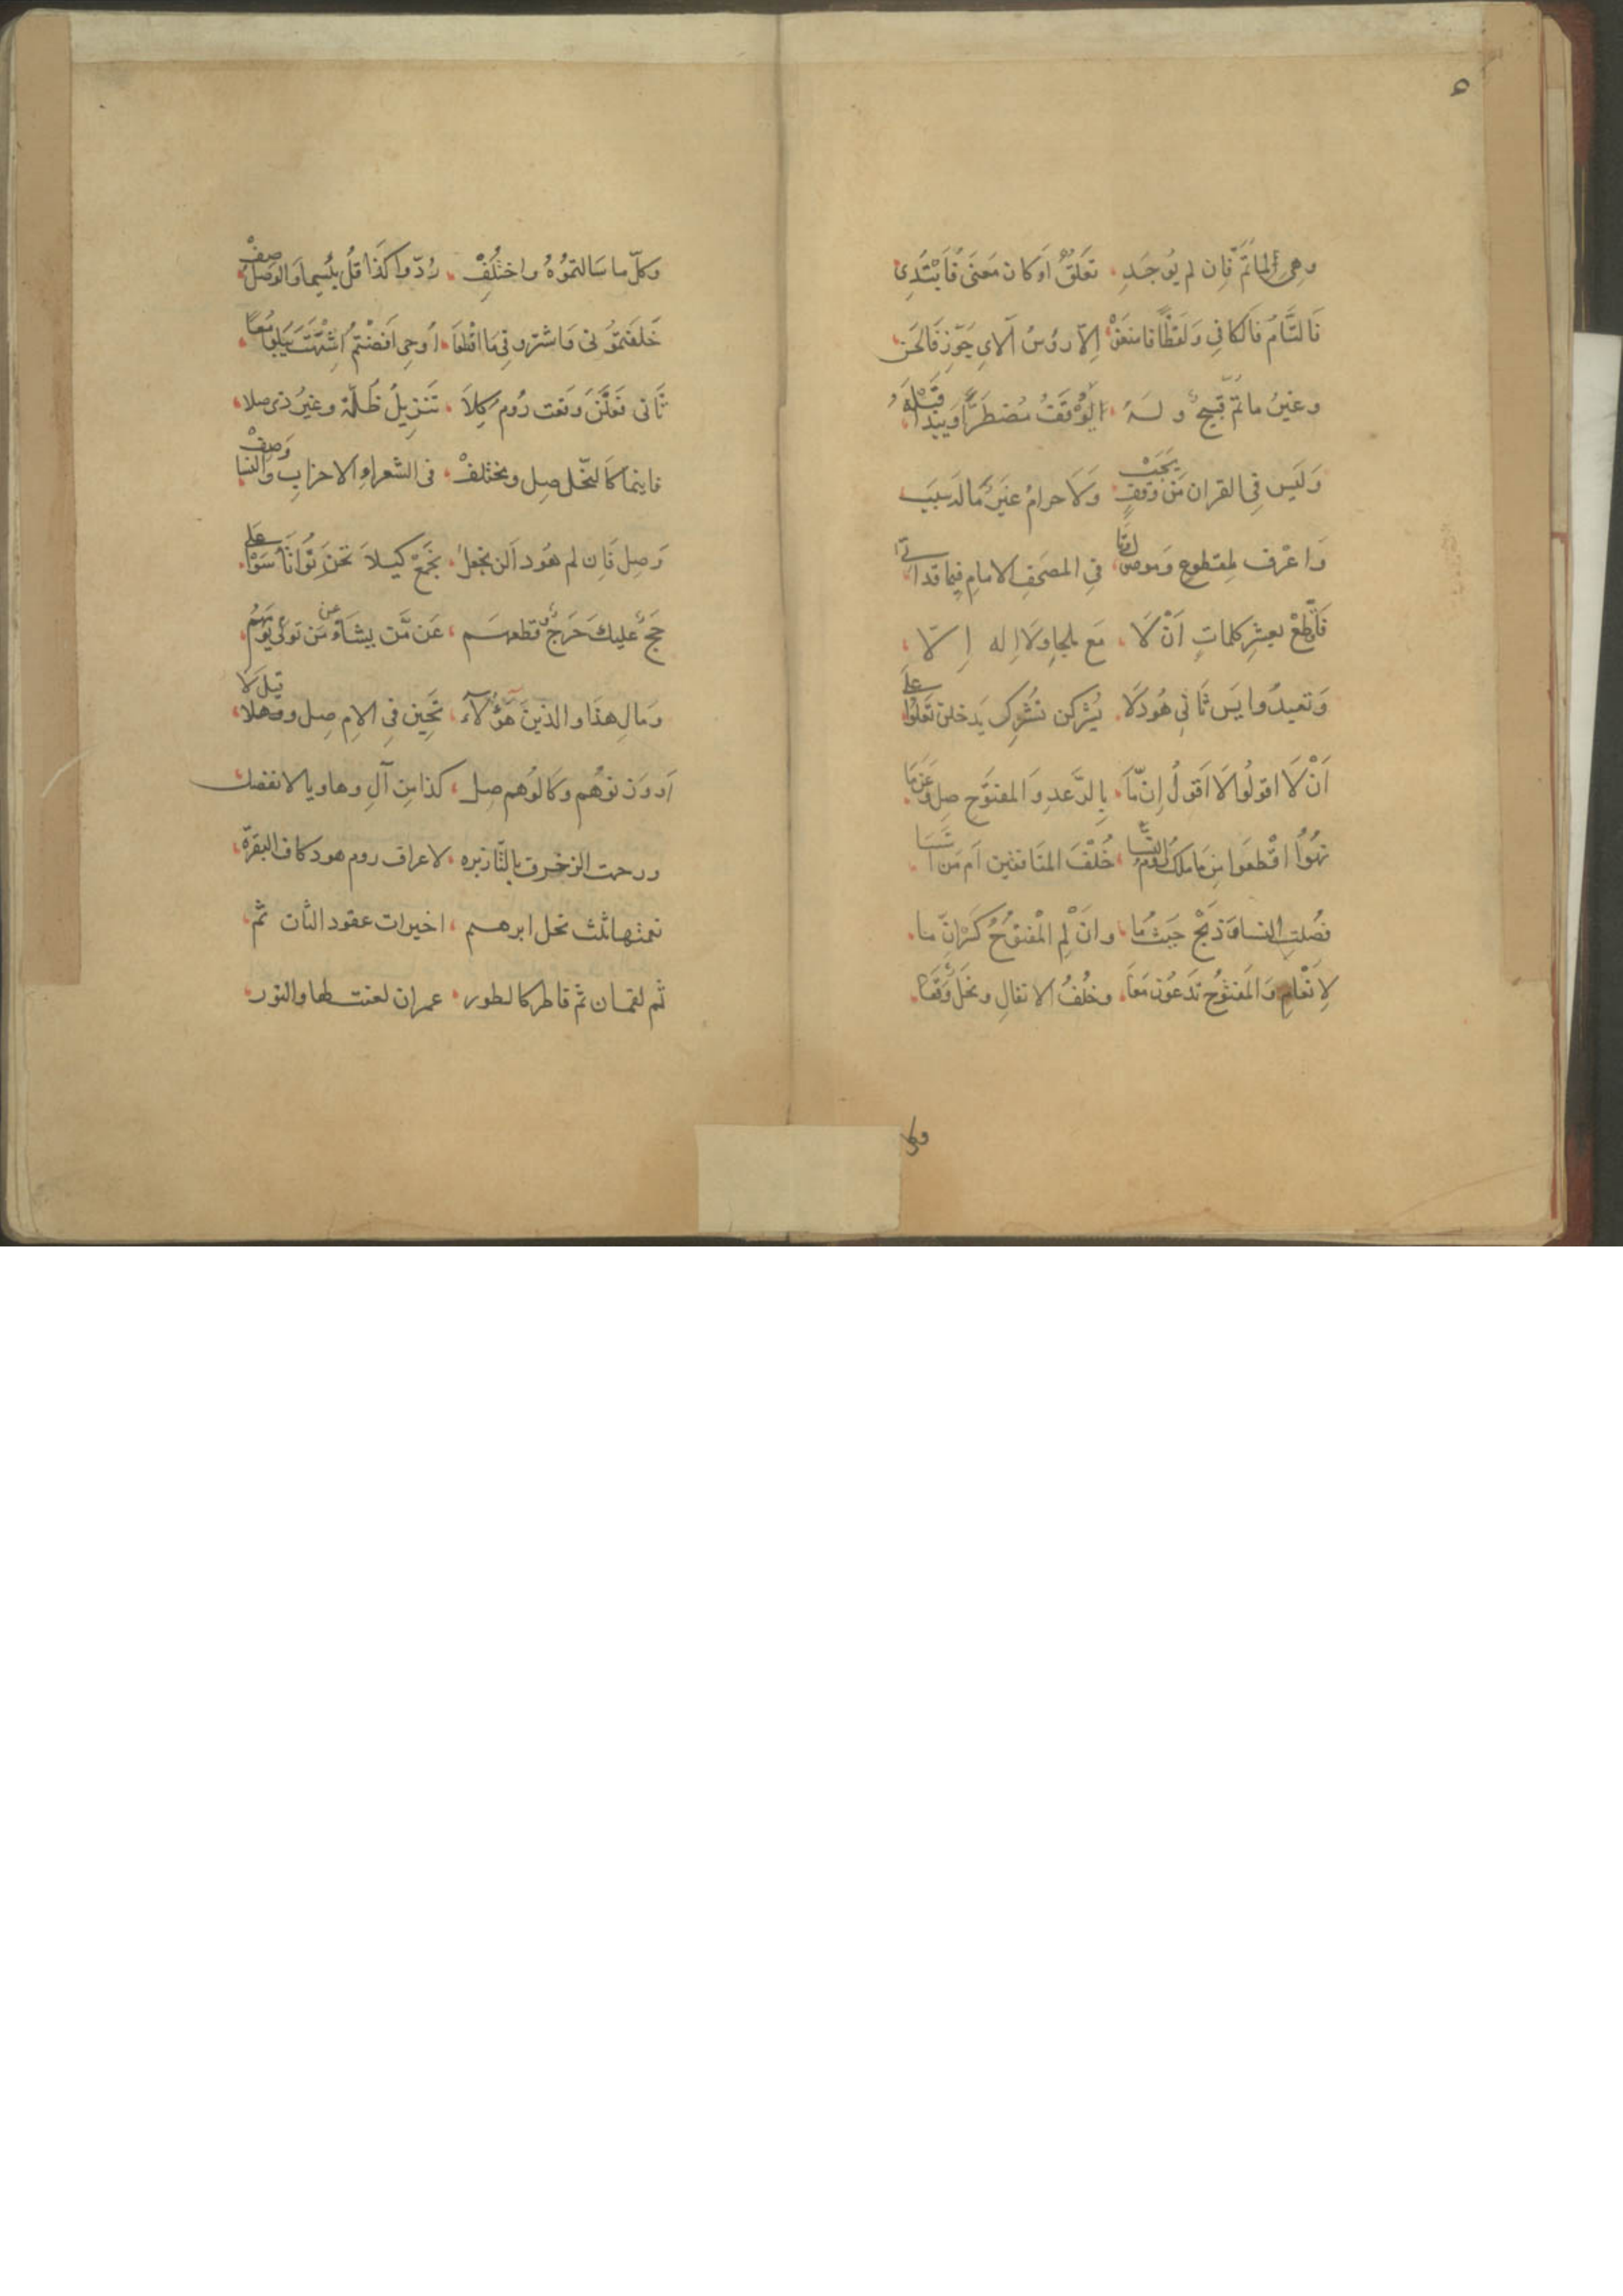 ٥
وهي لما تم فان لم يوجد تعلق او كان معنى فابتدى
فالتام فالكافي ولفظا فامنعن الا رؤس الاي جوز فالحسن
وغير ما تم قبيح وله يوقف مضطرا ويبدا قبله
وليس في القران من وقف يجب ولا حرام غير ما له سبب
واعرف لمقطوع وموصول وتا في المصحف الامام فيما قد اتى
فاقطع بعشر كلمات ان لا مع ملجا ولا اله الا
وتعبدوا يس ثاني هود لا يشركن تشرك يدخلن تعلوا على
ان لا يقولوا لا اقول ان ما بالرعد والمفتوح صل وعن ما
نهوا اقطعوا من ما ملك روم النسا خلف المنافقين ام من اسسا
فصلت النسا وذبح حيث ما وان لم المفتوح كسر ان ما
لانعام والمفتوح تدعون معا وخلف الانفال ونحل وقعا
وكل
وكل ما سالتموه واختلف ردوا كذا قل بئسما والوصل صف
خلفتموني واشتروا في ما اقطعا اوحي افضتم اشتهت يبلو معا
ثاني فعلن وقعت روم كلا تنزيل ظلة وغير ذي صلا
فاينما كالنحل صل ومختلف في الشعرا والاحزاب والنسا وصف
وصل فان لم هود الن نجعل نجمع كيلا تحزنوا تاسوا على
حج عليك حرج وقطعهم عن من يشاء من تولى يوم هم
ومال هذا والذين هؤلاء تحين في الامام صل وقيل لا
او وزنوهم وكالوهم صل كذا من ال وها ويا لا تفصل
ورحمت الزخرف بالتا زبره لاعراف روم هود كاف البقرة
نعمتها ثلث نحل ابرهم اخيرات عقود الثان ثم
ثم لقمان ثم فاطر كالطور عمران لعنت بها والنور